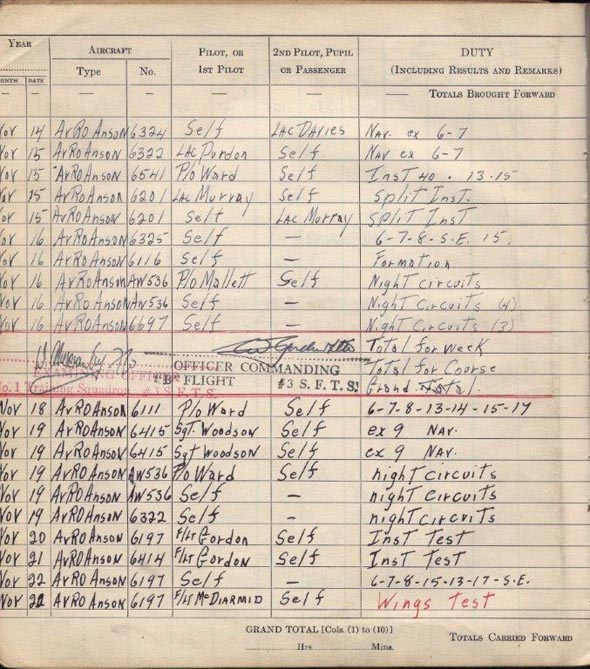 YEAR AIRCRAFT PILOT, OR 2ND PILOT, PUPIL DUTY
MONTH DATE Type No. 1ST PILOT OR PASSENGER (INCLUDING RESULTS AND REMARKS)
— — — — — — — TOTALS BROUGHT FORWARD
Nov 14 AvRO Anson 6324 Self LAC Davies Nav. ex 6-7
Nov 15 AvRO Anson 6322 LAC Purdon Self Nav ex 6-7
Nov 15 AvRO Anson 6541 P/o Ward Self Inst 40. 13-15
Nov 15 AvRO Anson 6201 LAC Murray Self Split Inst.
Nov 15 AvRO Anson 6201 Self LAC Murray SPlit Inst
Nov 16 AvRO Anson 6325 Self — 6-7-8-S.E. 15.
Nov 16 AvRO Anson 6116 Self — Formation
Nov 16 AvRO Anson AW536 P/o Mallett Self Night circuits
Nov 16 AvRO Anson AW536 Self — Night Circuits (4)
Nov 16 AvRO Anson 6697 Self — Night Circuits (3)
Total for week
OFFICER COMMANDING Total for Course
No. 1 Training Squadron #3 S.F.T.S. "B" FLIGHT #3 S.F.T.S. Grand Total.
Nov 18 AvRO Anson 6111 P/o Ward Self 6-7-8-13-14-15-17
Nov 19 AvRO Anson 6415 Sgt. Woodson Self ex 9 Nav.
Nov 19 AvRO Anson 6415 Sgt Woodson Self ex 9 Nav.
Nov 19 AvRO Anson AW536 P/o Ward Self night circuits
Nov 19 AvRO Anson AW536 Self — night circuits
Nov 19 AvRO Anson 6322 Self — night circuits
Nov 20 AvRO Anson 6197 F/Lt Gordon Self Inst Test
Nov 21 AvRO Anson 6414 F/Lt Gordon Self Inst Test
Nov 22 AvRO Anson 6197 Self — 6-7-8-15-13-17-S.E.
Nov 22 AvRO Anson 6197 F/Lt McDiarmid Self Wings Test
GRAND TOTAL [Cols. (1) to (10)]
Hrs. Mins. TOTALS CARRIED FORWARD